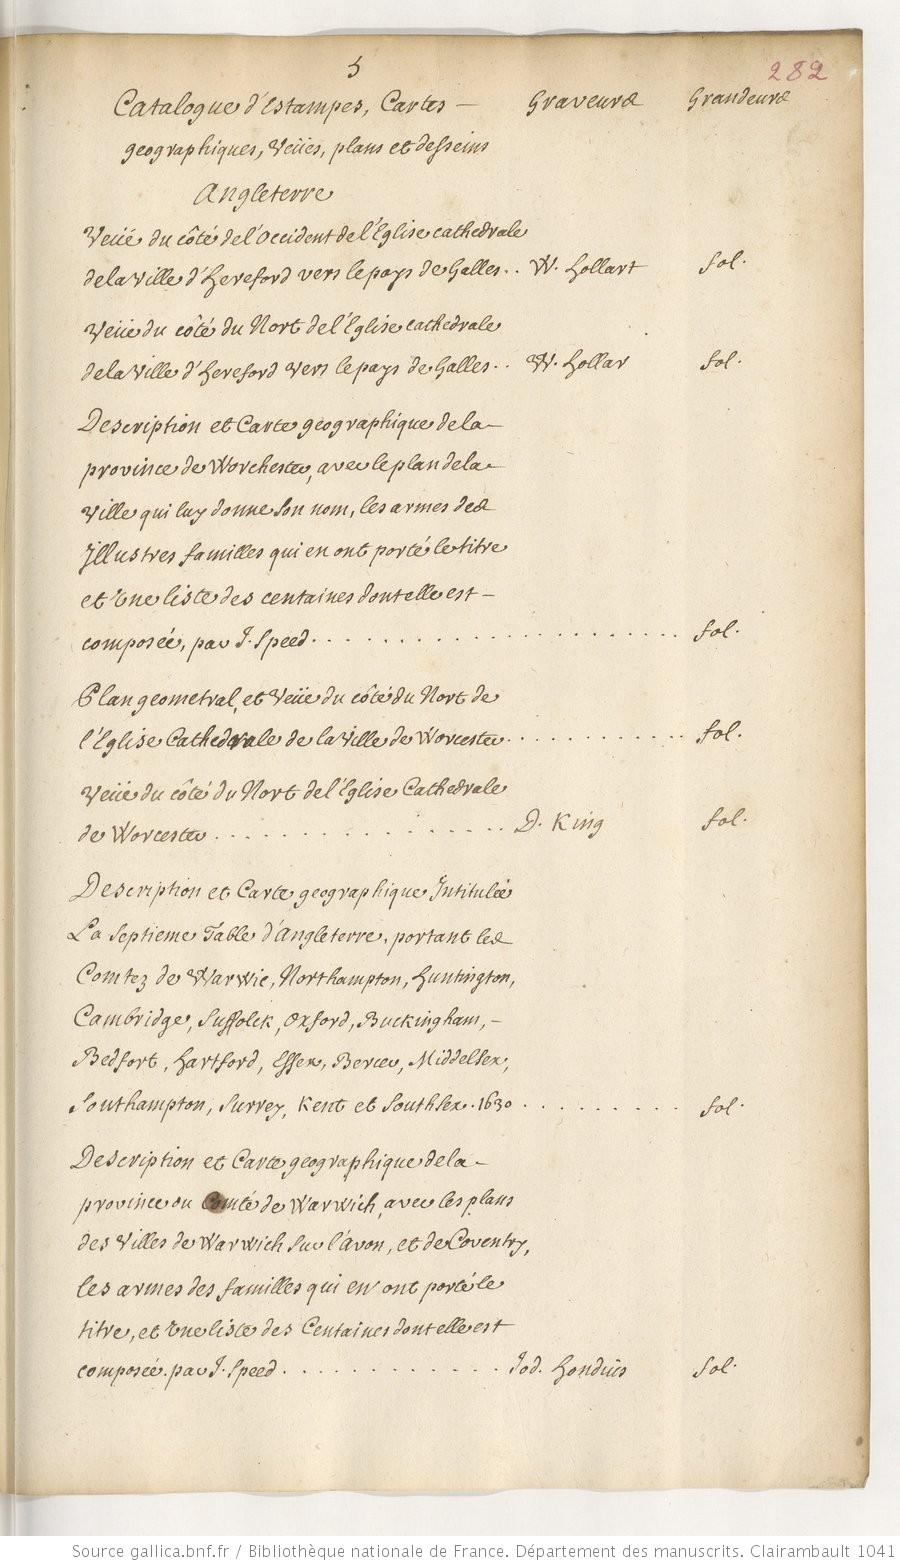 5
282
Catalogue d'Estampes, Cartes — Graveurs Grandeurs
geographiques, Veües, plans et desseins
Angleterre
Veüe du côté de l'Occident de l'Eglise cathedrale
de la Ville d'Hereford vers le pays de Galles.. W. Hollart fol.
Veüe du côté du Nort de l'Eglise cathedrale
de la Ville d'Hereford vers le pays de Galles.. W. Hollar fol.
Description et Carte geographique de la —
province de Worchester, avec le plan de la —
Ville qui luy donne son nom, les armes des
Illustres familles qui en ont porté le titre
et Une liste des centaines dont elle est —
composée, par J. Speed. . . . . . . . . . . . . . . . . . . . . . fol.
Plan geometral, et Veüe du côté du Nort de
l'Eglise Cathedrale de la Ville de Worcester. . . . . . . . . . . . . fol.
Veüe du côté du Nort de l'Eglise Cathedrale
de Worcester . . . . . . . . . . . . . . . . . D. King fol.
Description et Carte geographique Intitulée
La Septieme Table d'Angleterre, portant les
Comtez de Warwic, Northampton, Huntington,
Cambridge, Suffolck, Oxford, Buckingham, —
Bedfort, Hartford, Essex, Bercer, Middelsex,
Southampton, Surrey, Kent et Southsex. 1630 . . . . . . . . . fol.
Description et Carte geographique de la —
province ou Comté de Warwich, avec les plans
des Villes de Warwich sur l'Avon, et de Coventry,
les armes des familles qui en ont porté le
titre, et Une liste des Centaines dont elle est
composée. par J. Speed . . . . . . . . . . . . Jod. Hondüis fol.
Source gallica.bnf.fr / Bibliothèque nationale de France. Département des manuscrits. Clairambault 1041